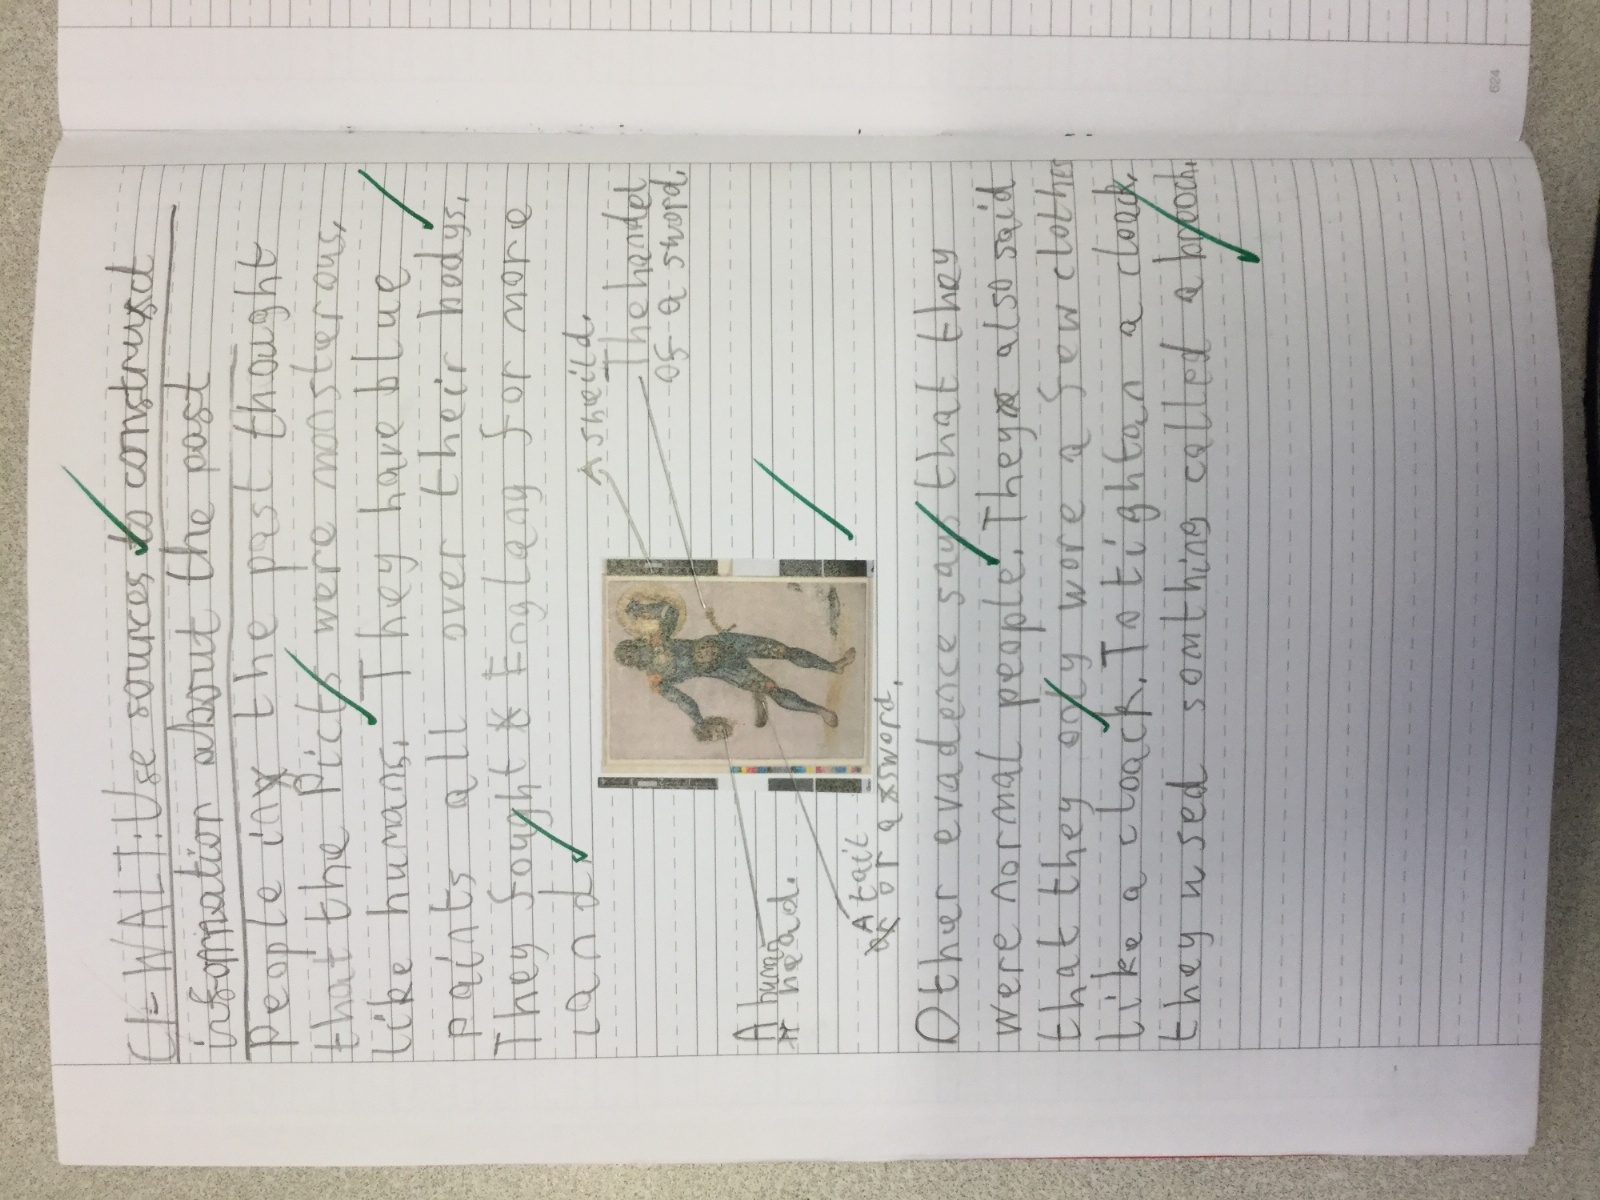 CI- WALT: Use sources to construct
information about the past
People in the past thought
that the Picts were monsterous,
like humans. They have blue
paints all over their bodys.
They fought England for more
land.
A sheild.
The handel
of a sword.
A human
head.
A tail
or a sword.
Other evadence says that they
were normal people. They also said
that they only wore a few clothes
like a cloack. To tightan a cloack,
they used somthing called a brooch.
624